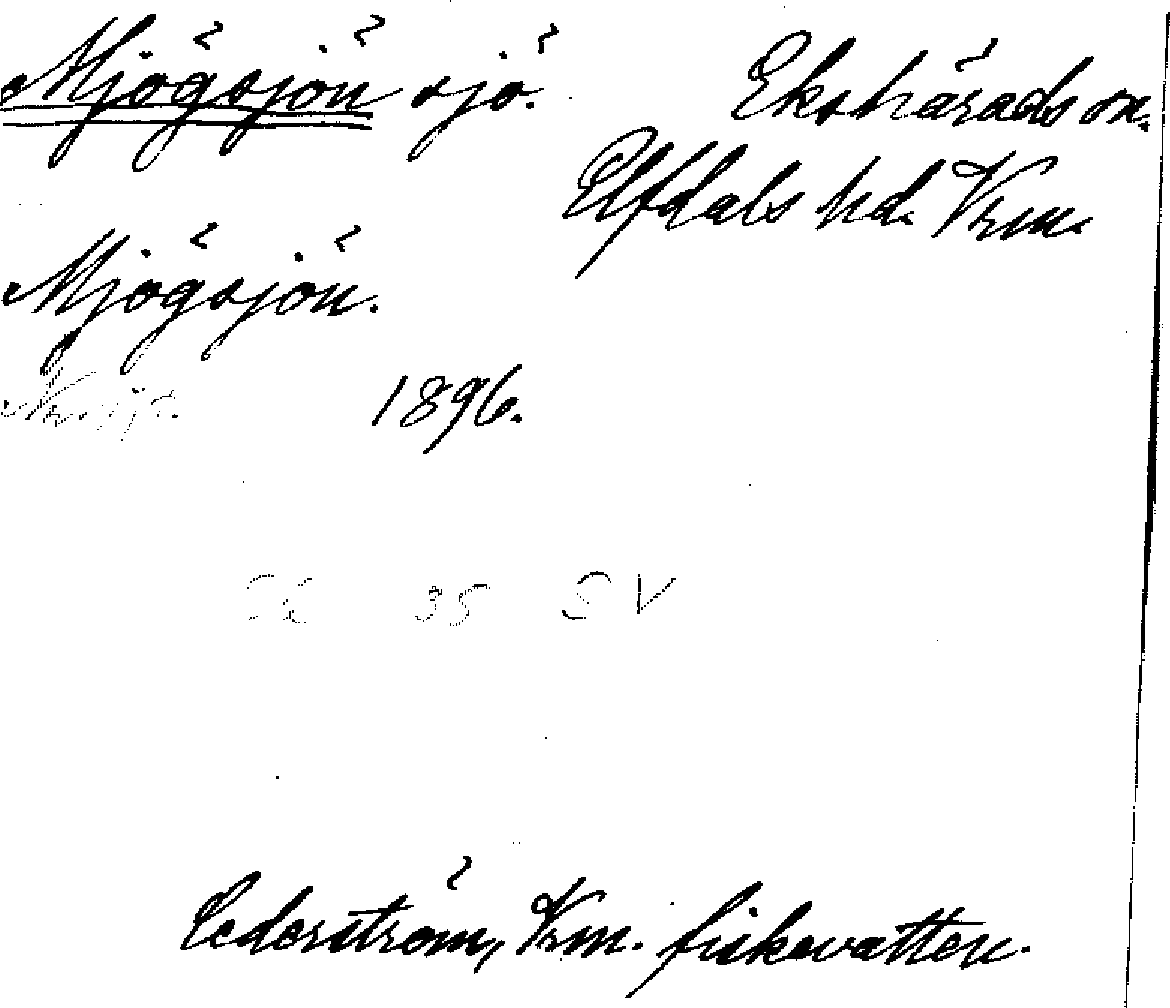 Mjögsjön sjö. Ekshärads sn.
Elfdals hd. Vrm.
Mjögsjön.
1896.
35 SV
Cederström, Vrm. fiskevatten.